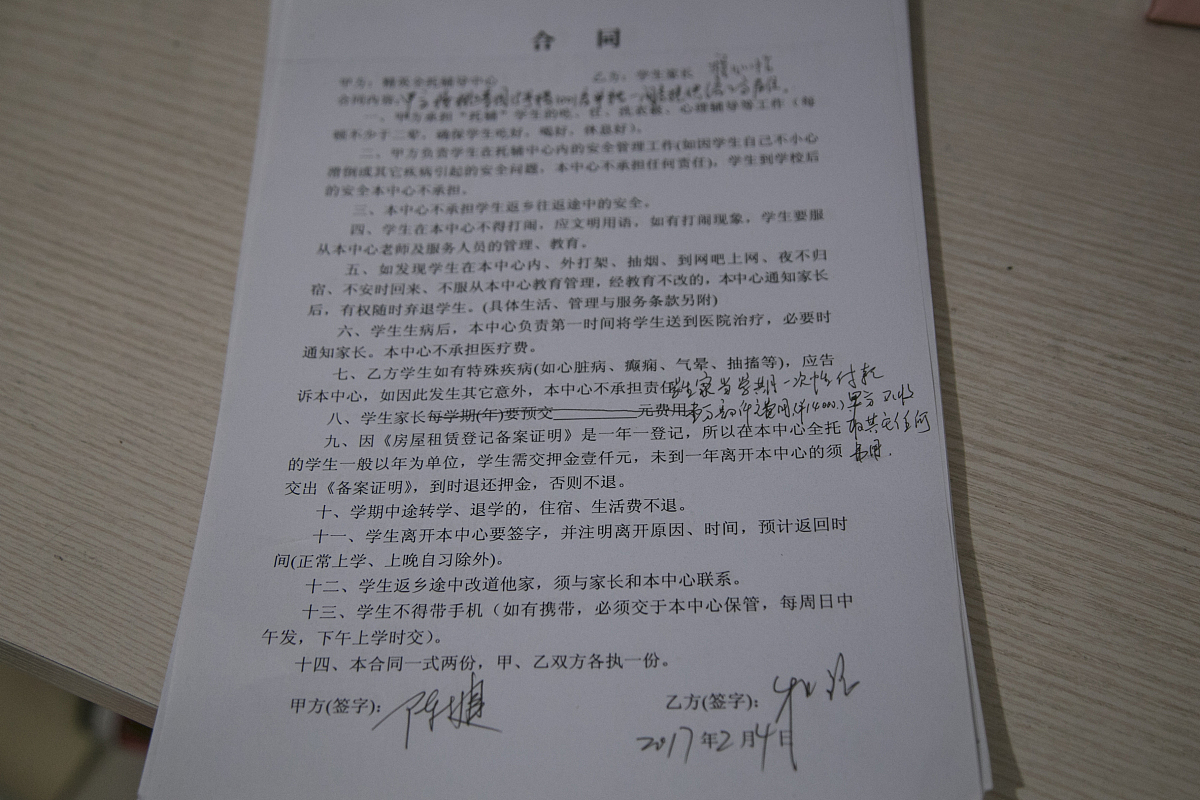 合 同
甲方：精英全托辅导中心 乙方：学生家长
合同内容：
一、甲方承担“托辅”学生的吃、住、洗衣被、心理辅导等工作（每
顿不少于二荤，确保学生吃好，喝好，休息好）。
二、甲方负责学生在托辅中心内的安全管理工作(如因学生自己不小心
滑倒或其它疾病引起的安全问题，本中心不承担任何责任)，学生到学校后
的安全本中心不承担。
三、本中心不承担学生返乡往返途中的安全。
四、学生在本中心不得打闹，应文明用语，如有打闹现象，学生要服
从本中心老师及服务人员的管理、教育。
五、如发现学生在本中心内、外打架、抽烟、到网吧上网、夜不归
宿、不安时回来、不服从本中心教育管理，经教育不改的，本中心通知家长
后，有权随时弃退学生。(具体生活、管理与服务条款另附)
六、学生生病后，本中心负责第一时间将学生送到医院治疗，必要时
通知家长。本中心不承担医疗费。
七、乙方学生如有特殊疾病(如心脏病、癫痫、气晕、抽搐等)，应告
诉本中心，如因此发生其它意外，本中心不承担责任
学生家长当学期一次性付款
八、学生家长每学期(年)要预交 元费用
甲方不收
九、因《房屋租赁登记备案证明》是一年一登记，所以在本中心全托
取其它任何
的学生一般以年为单位，学生需交押金壹仟元，未到一年离开本中心的须
费用.
交出《备案证明》，到时退还押金，否则不退。
十、学期中途转学、退学的，住宿、生活费不退。
十一、学生离开本中心要签字，并注明离开原因、时间，预计返回时
间(正常上学、上晚自习除外)。
十二、学生返乡途中改道他家，须与家长和本中心联系。
十三、学生不得带手机（如有携带，必须交于本中心保管，每周日中
午发，下午上学时交）。
十四、本合同一式两份，甲、乙双方各执一份。
甲方(签字): 陈捷 乙方(签字):
2017年2月4日